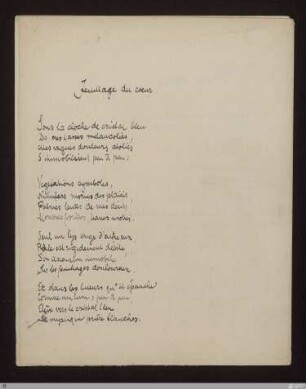 Feuillage du coeur
Sous la cloche de cristal bleu
De mes lasses mélancolies,
Mes vagues douleurs abolies
S'immobilisent peu à peu :
Végétations symboles,
Nénuphars mornes des plaisirs
Palmes lentes de mes désirs
froides, lianes molles.
Seul un lys érige d'entre eux
Pâle et rigidement débile
Son ascension immobile
Sur les feuillages douloureux
Et dans les lueurs qu'il épanche
Comme une lune, peu à peu
Élève vers le cristal bleu
Sa mystique prière blanche.